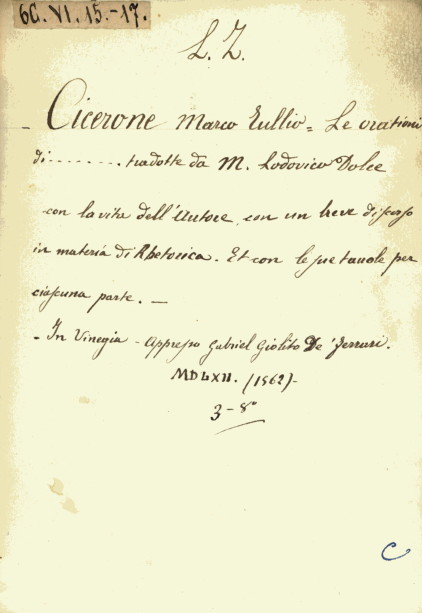 6C. VI. 15.-17.
L. Z.
- Cicerone Marco Tullio = Le orationi
di . . . . . . . . tradotte da M. Lodovico Dolce
con la vita dell'Autore, con un breve discorso
in materia di Rhetorica. Et con le sue tauole per
ciascuna parte. -
- In Vinegia - Appresso Gabriel Giolito De' Ferrari.
MDLXII. (1562)-
3 - 8°
C